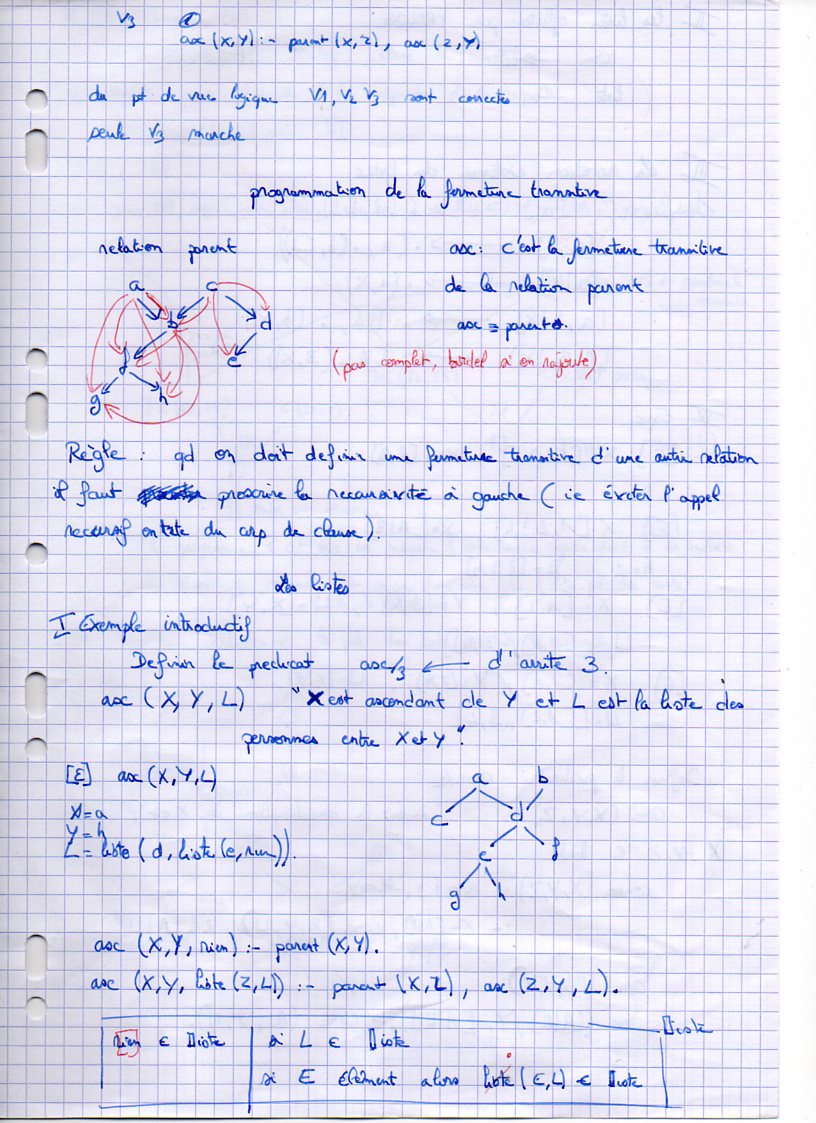 V3 ①
asc (X,Y) :- parent (X,Z), asc (Z,Y)
du pt de vue logique V1, V2 V3 sont correctes
seule V3 marche
programmation de la fermeture transitive
relation parent
asc : c'est la fermeture transitive
de la relation parent
asc ≡ parent
a c
b d
f e
g h
(pas complet, bordel à on rajoute)
Règle : qd on doit definir une fermeture transitive d'une autre relation
il faut proscrire la recursivité à gauche (ie éviter l'appel
recursif en tete du corp de clause).
Les listes
I Exemple introductif
Definir le predicat asc/3 ← d'arite 3.
asc (X, Y, L) "X est ascendant de Y et L est la liste des
personnes entre X et Y".
[E] asc (X,Y,L)
X = a
Y = h
L = liste (d, liste (e, rien)).
a b
c d
e f
g h
asc (X,Y, rien) :- parent (X,Y).
asc (X,Y, liste (Z,L)) :- parent (X,Z), asc (Z,Y,L).
Liste
rien ∈ Liste
si L ∈ Liste
si E élément alors liste (E,L) ∈ Liste